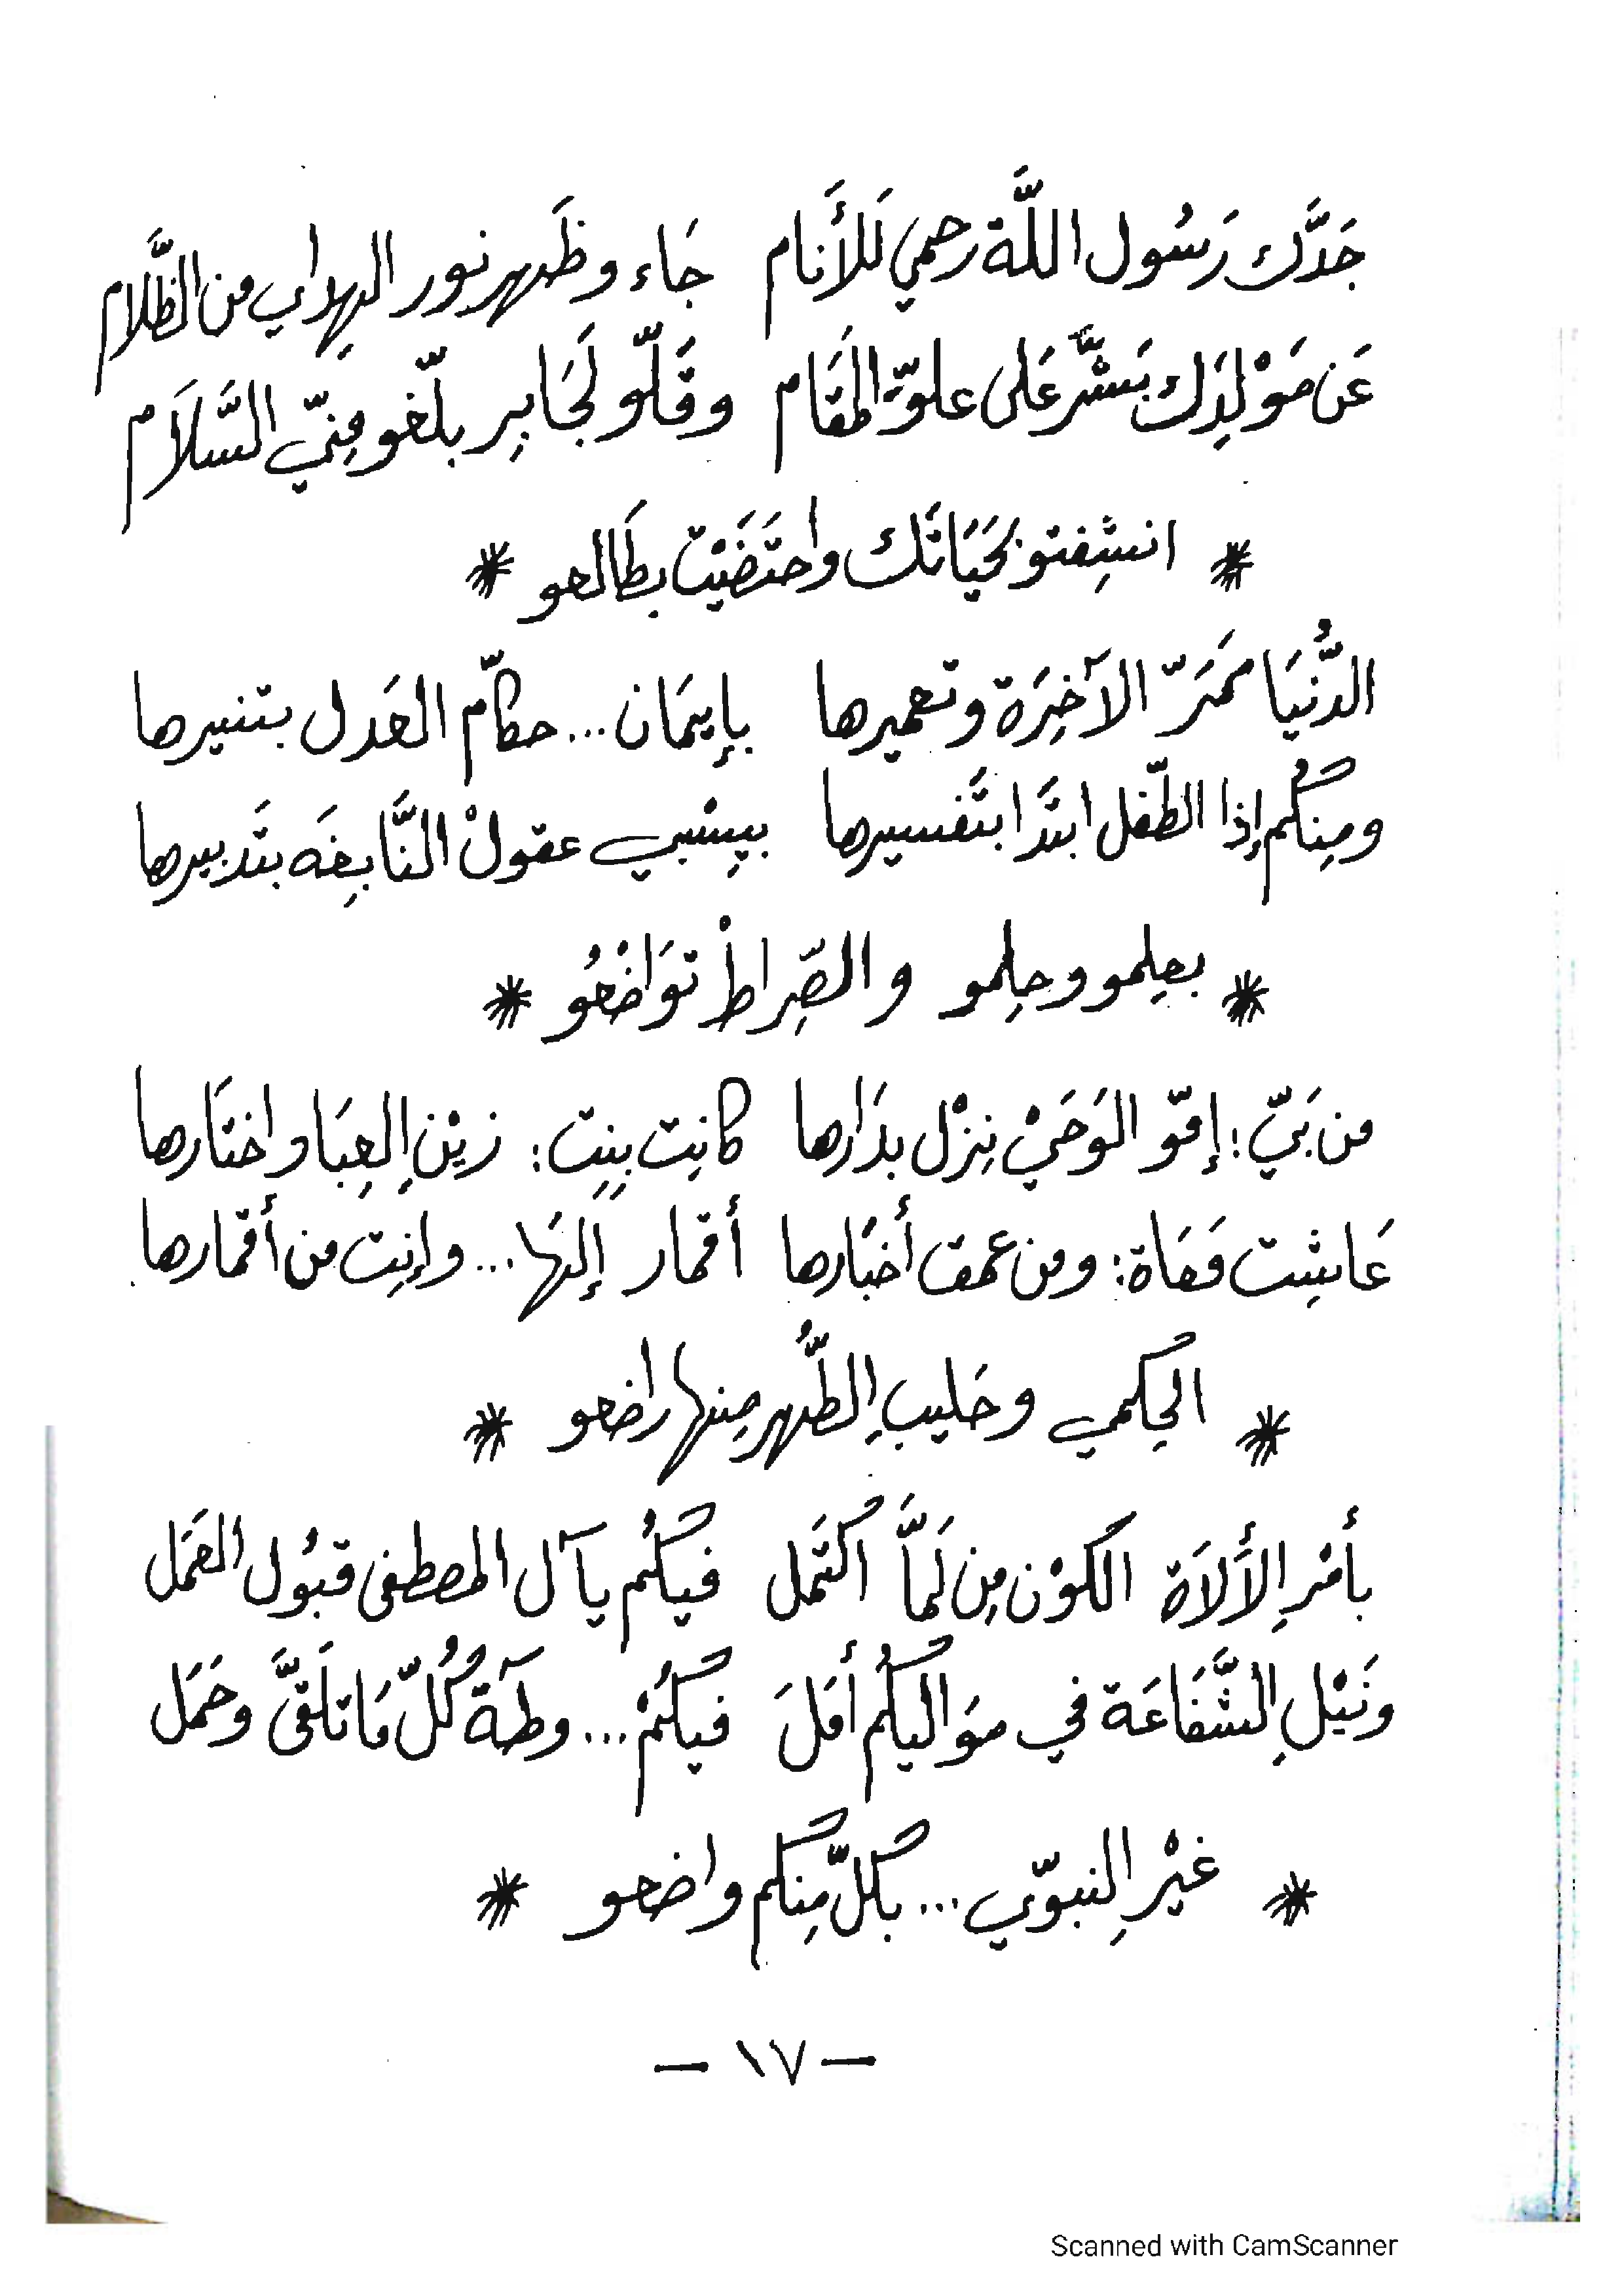 جَدَّك رَسُول اللَّة رحمي لَلأَنام جَاء وظَهر نور الهِداي من الظَّلام
عَن مَوْلِدَك بَشَّر عَلى علوّ المقَام وقَلّو لَجَابِر بلّغو مِنّي السَّلاَم
* انشِفتو بحَيَاتَك واحتَضَيْت بطَالعو *
الدُّنيَا مَمَرّ الآخِرَة وتعميرها بإيمَان... حكاّم العَدل بتنيرها
ومِنكُم إذا الطّفل ابتَدَا بتَفسيرها بيِسْبي عقولْ النَّابِغَه بتَدبيرها
* بعِلمو وحِلمو والصِّراطْ توَاضْعُو *
من بَيّ؛ إمّو الوَحَيْ نِزْل بدَارها كانِت بِنِت: زيْنِ العِبَاد اختَارها
عَاشِت مَعَاة: ومن عمق أخبَارها أقمار إلهَا... وإنِت من أقمارها
* الحِكمي وحَليبِ الطُّهر مِنها راضعو *
بأمْرِ الأَلاَة الكوْن مِن لَمَّا اكتَمَل فيكُم يآل المصطفى قبُول العَمَل
ونَيْلِ الشَّفَاعَة في موَاليكُم أمَلَ فيكُمْ... وطآة كُلّ مَا تلَقَّى وحَمَل
* غيْرِ النبوّي... بكلّ مِنكم واضحو *
— ١٧ —
Scanned with CamScanner